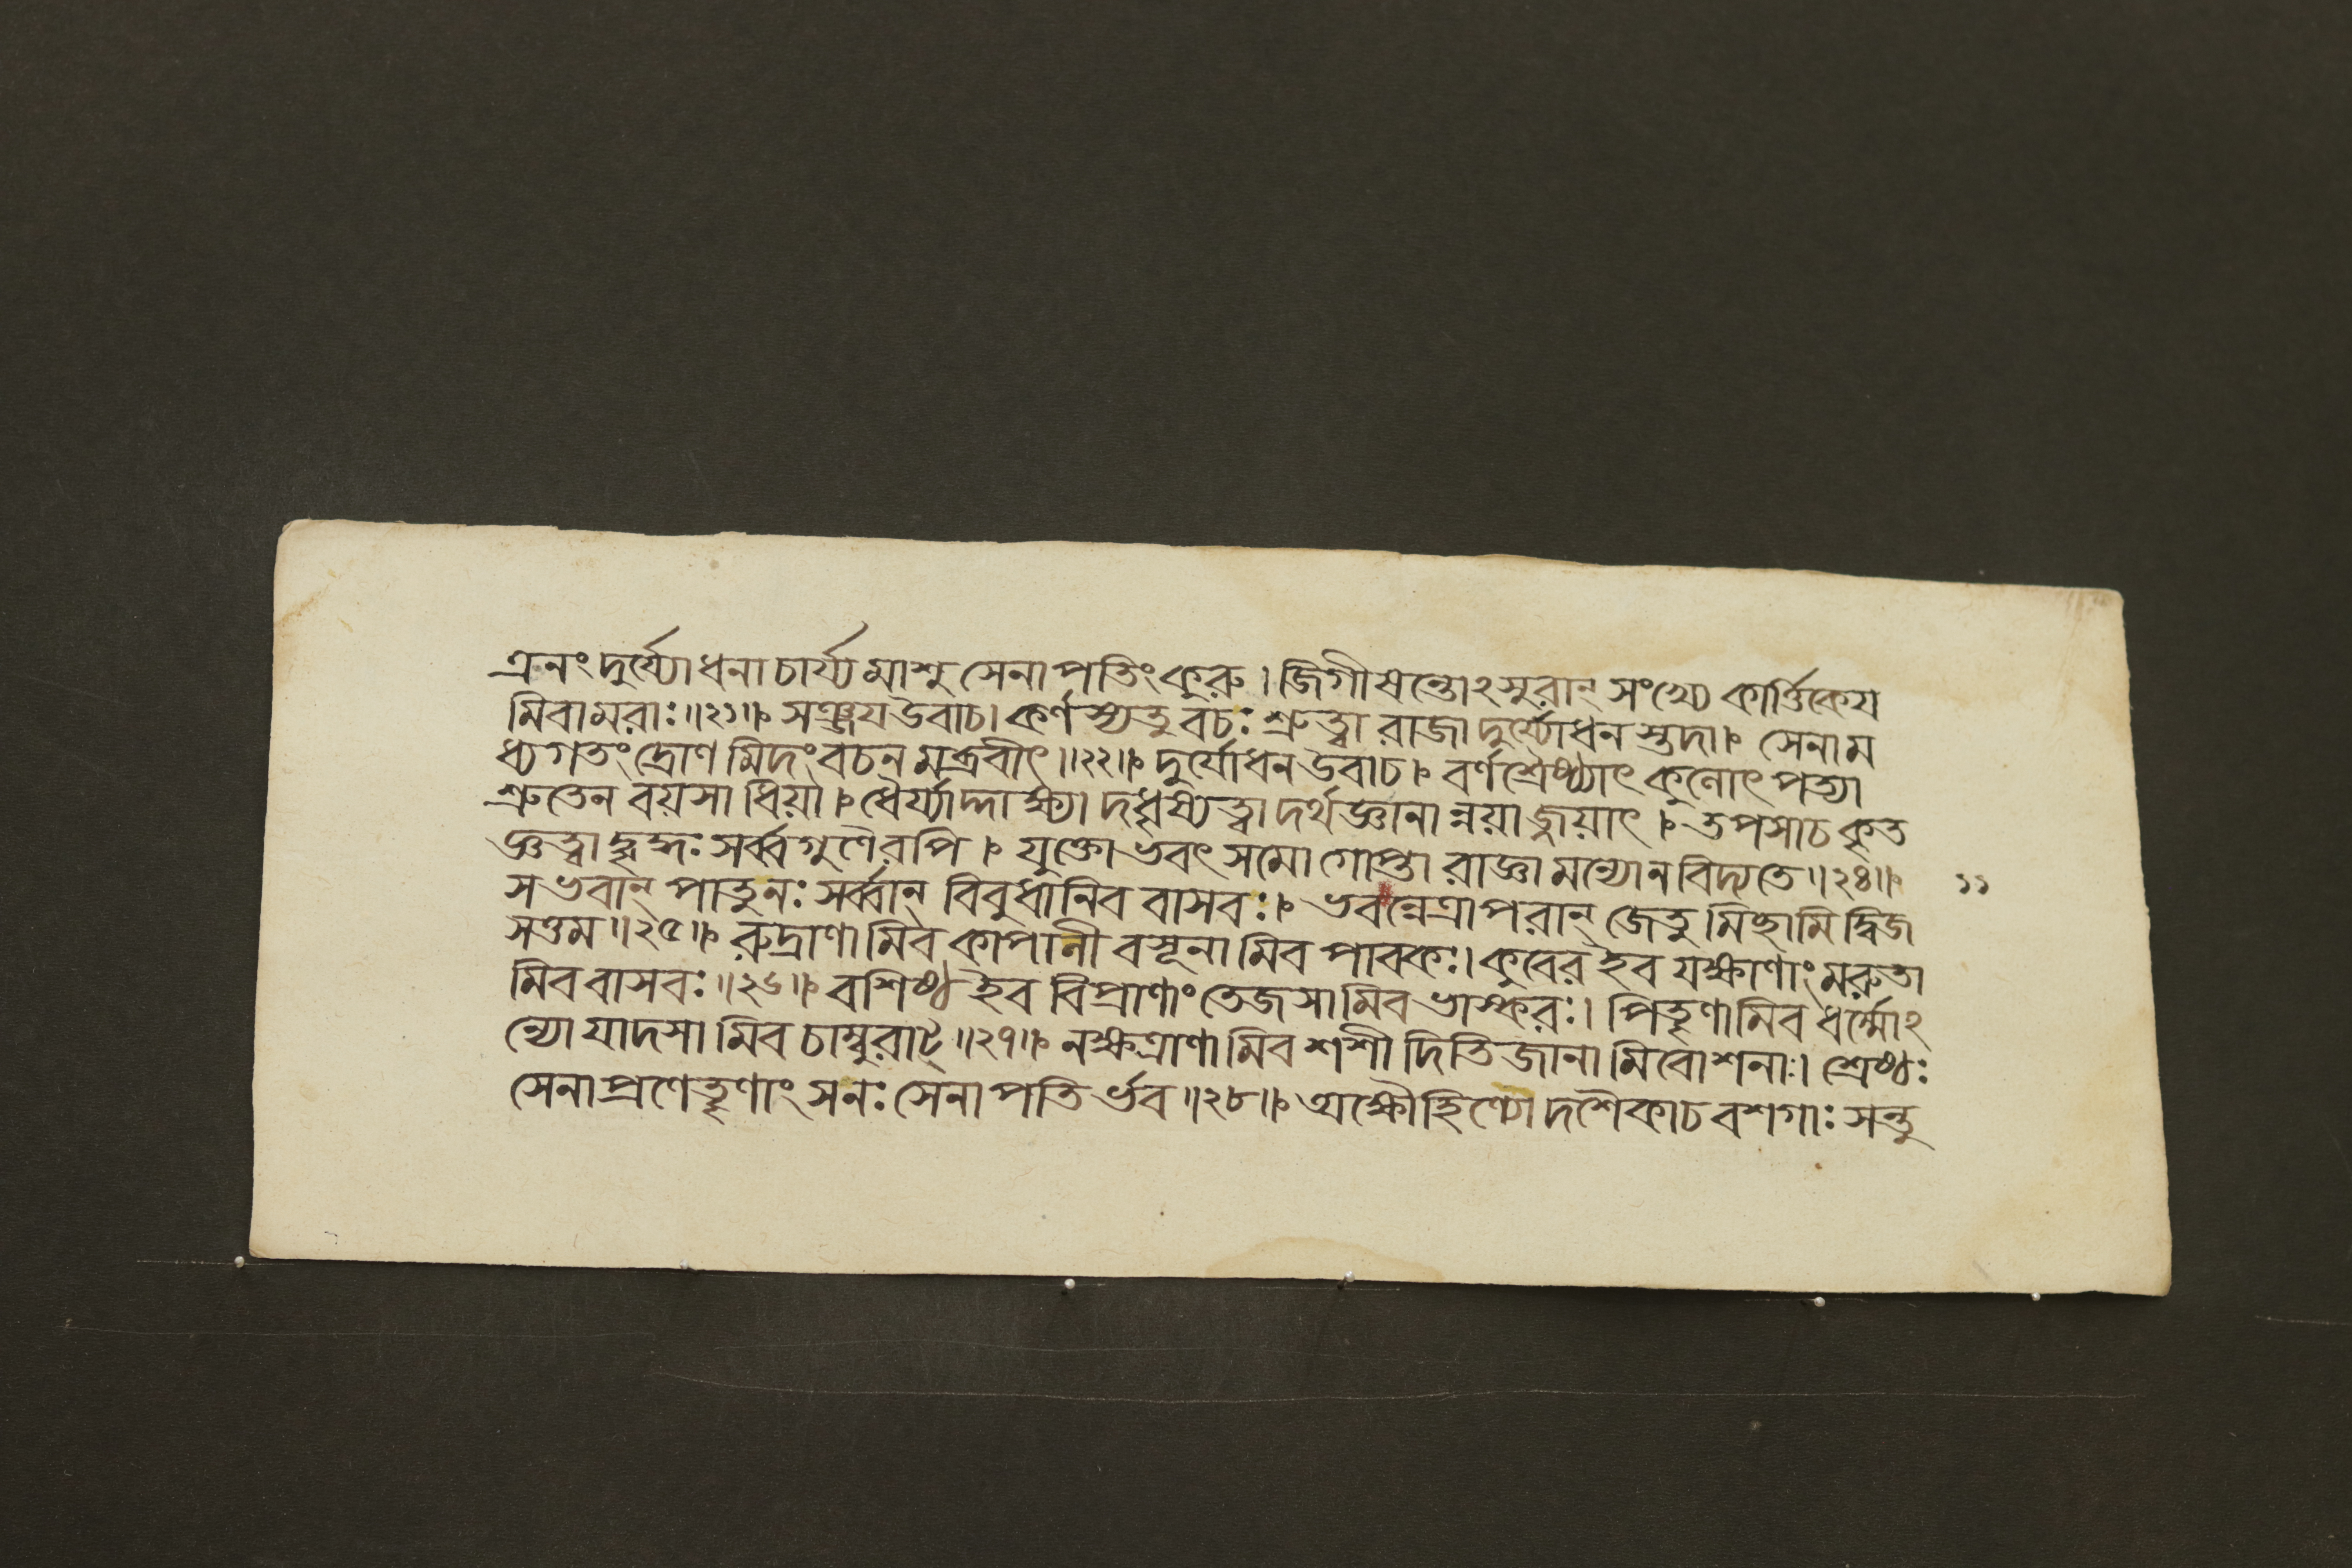 এনং দুর্য্যোধনাচার্য্যমাশু সেনাপতিং কুরু । জিগীষন্তোঽসুরান্ সংখ্যে কার্ত্তিকেয
মিবামরাঃ ॥২১॥ সঞ্জয উবাচ। কর্ণস্যতু বচঃ শ্রুত্বা রাজা দুর্য্যোধনস্তদা। সেনাম
ধ্যগতং দ্রোণমিদং বচনমব্রবীৎ ॥২২॥ দুর্যোধন উবাচ। বর্ণশ্রৈষ্ঠ্যাৎ কুলোৎপত্যা
শ্রুতেন বয়সা ধিয়া। ধৈর্য্যাদ্দাক্ষ্যাদধৃষ্যত্বাদর্থজ্ঞানান্নয়াজ্জয়াৎ । তপসাচ কৃত
জ্ঞত্বাদ্বৃদ্ধঃ সর্ব্বগুণৈরপি । যুক্তো ভবৎসমো গোপ্তা রাজ্ঞামন্যোন বিদ্যতে ॥২৪॥ ১১
স ভবান্ পাতুনঃ সর্ব্বান্ বিবুধানিব বাসবঃ। ভবন্নেত্রাপরান্ জেতুমিচ্ছামি দ্বিজ
সত্তম ॥২৫॥ রুদ্রাণামিব কাপালী বসূনামিব পাবকঃ। কুবের ইব যক্ষাণাং মরুতা
মিব বাসবঃ ॥২৬॥ বশিষ্ঠ ইব বিপ্রাণাং তেজসামিব ভাস্করঃ। পিতৄণামিব ধর্ম্মোঽ
ন্যো যাদসামিব চাম্বুরাট্ ॥২৭॥ নক্ষত্রাণামিব শশী দিতিজানামিবোশনাঃ। শ্রেষ্ঠঃ
সেনাপ্রণেতৄণাং সনঃ সেনাপতির্ভব ॥২৮॥ অক্ষৌহিণ্যো দশৈকাচ বশগাঃ সন্তু